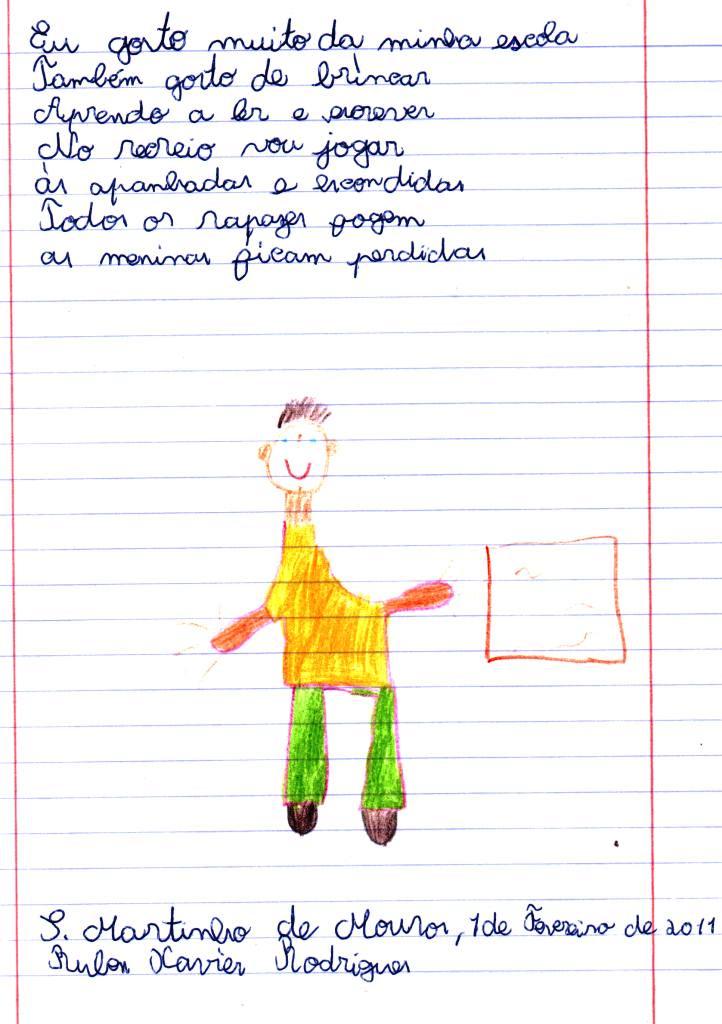 Eu gosto muito da minha escola
Também gosto de brincar
Aprendo a ler e escrever
No recreio vou jogar
às apanhadas e escondidas
Todos os rapazes fogem
as meninas ficam perdidas
S. Martinho de Mouros, 1 de Fevereiro de 2011
Ruben Xavier Rodrigues